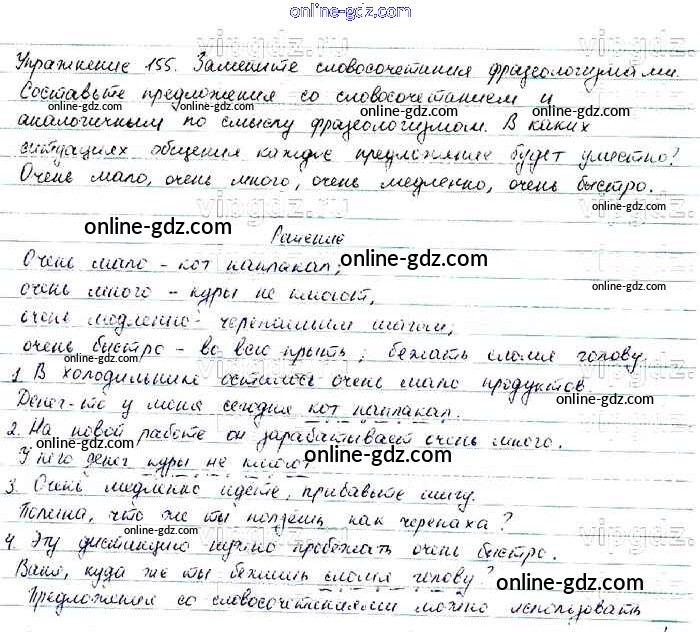 online-gdz.com
Упражнение 155. Замените словосочетания фразеологизмами.
Составьте предложения со словосочетанием и
аналогичным по смыслу фразеологизмом. В каких
ситуациях общения каждое предложение будет уместно?
Очень мало, очень много, очень медленно, очень быстро.
Решение
Очень мало - кот наплакал;
очень много - куры не клюют,
очень медленно - черепашьим шагом;
очень быстро - во всю прыть; бежать сломя голову.
1. В холодильнике осталось очень мало продуктов.
Денег-то у меня сегодня кот наплакал.
2. На новой работе он зарабатывает очень много.
У него денег куры не клюют
3. Очень медленно идёте, прибавьте шагу.
Полина, что же ты ползёшь как черепаха?
4. Эту дистанцию нужно пробежать очень быстро.
Ваня, куда же ты бежишь сломя голову?
Предложения со словосочетаниями можно использовать